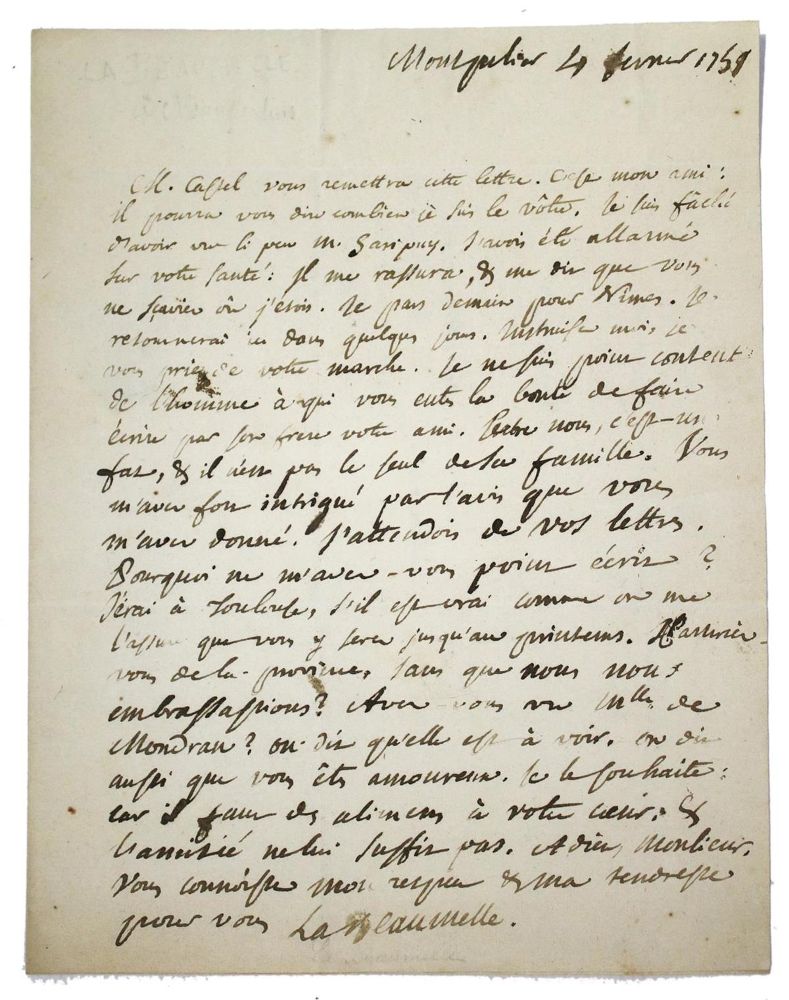 Montpelier 4 fevrier 1759
M. Castel vous remettra cette lettre. C'est mon ami:
il pourra vous dire combien je suis le vôtre. Je suis fâché
d'avoir vu si peu M. Garipuy. J'avois été allarmé
sur votre santé: Il me rassura, & me dit que vous
ne sçaviez où j'étois. Je pars demain pour Nîmes. Je
retournerai ici dans quelques jours. Instruisez moi, je
vous prie, de votre marche. Je ne suis point content
de l'homme à qui vous eutes la bonté de faire
écrire par son frere votre ami. Entre nous, c'est un
fat, & il n'est pas le seul de sa famille. Vous
m'avez fort intrigué par l'avis que vous
m'avez donné. J'attendois de vos lettres.
Pourquoi ne m'avez-vous point écrit?
J'irai à Toulouse, s'il est vrai comme on me
l'assure que vous y serez jusqu'au printems. Partiriez-
vous de la province, sans que nous nous
embrassassions? Avez vous vu Mlle de
Mondran? on dit qu'elle est à voir. on dit
aussi que vous êtes amoureux. Je le souhaite:
car il faut des alimens à votre coeur: &
l'amitié ne lui suffit pas. Adieu, Monsieur.
Vous connoissez mon respect & ma tendresse
pour vous La Beaumelle.